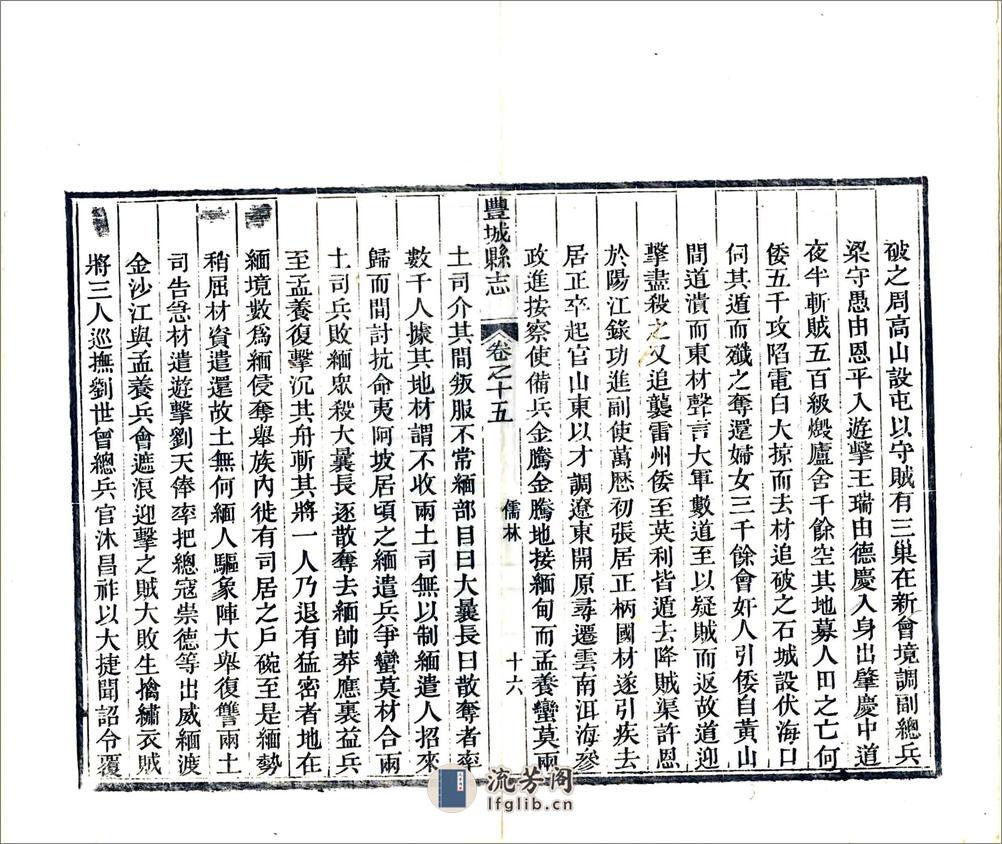 破之周高山設屯以守賊有三巢在新會境調副總兵
梁守愚由恩平入遊擊王瑞由德慶入身出肇慶中道
夜半斬賊五百級燬廬舍千餘空其地募人田之亡何
倭五千攻陷電白大掠而去材追破之石城設伏海口
伺其遁而殲之奪還婦女三千餘會奸人引倭自黃山
間道潰而東材聲言大軍數道至以疑賊而返故道迎
擊盡殺之又追襲雷州倭至英利皆遁去降賊渠許恩
於陽江錄功進副使萬歷初張居正柄國材遂引疾去
居正卒起官山東以才調遼東開原尋遷雲南洱海參
政進按察使備兵金騰金騰地接緬甸而孟養蠻莫兩
豐城縣志
卷之十五
儒林
十六
土司介其間叛服不常緬部目曰大曩長曰散奪者率
數千人據其地材謂不收兩土司無以制緬遣人招來
歸而間討抗命夷阿坡居頃之緬遣兵爭蠻莫材合兩
土司兵敗緬眾殺大曩長逐散奪去緬帥莽應裏益兵
至孟養復擊沉其舟斬其將一人乃退有猛密者地在
緬境數為緬侵奪舉族內徙有司居之戶碗至是緬勢
稍屈材資遣還故土無何緬人驅象陣大舉復讐兩土
司告急材遣遊擊劉天俸率把總寇崇德等出威緬渡
金沙江與孟養兵會遮浪迎擊之賊大敗生擒繡衣賊
將三人巡撫劉世曾總兵官沐昌祚以大捷聞詔令覆
流芳阁
lfglib.cn